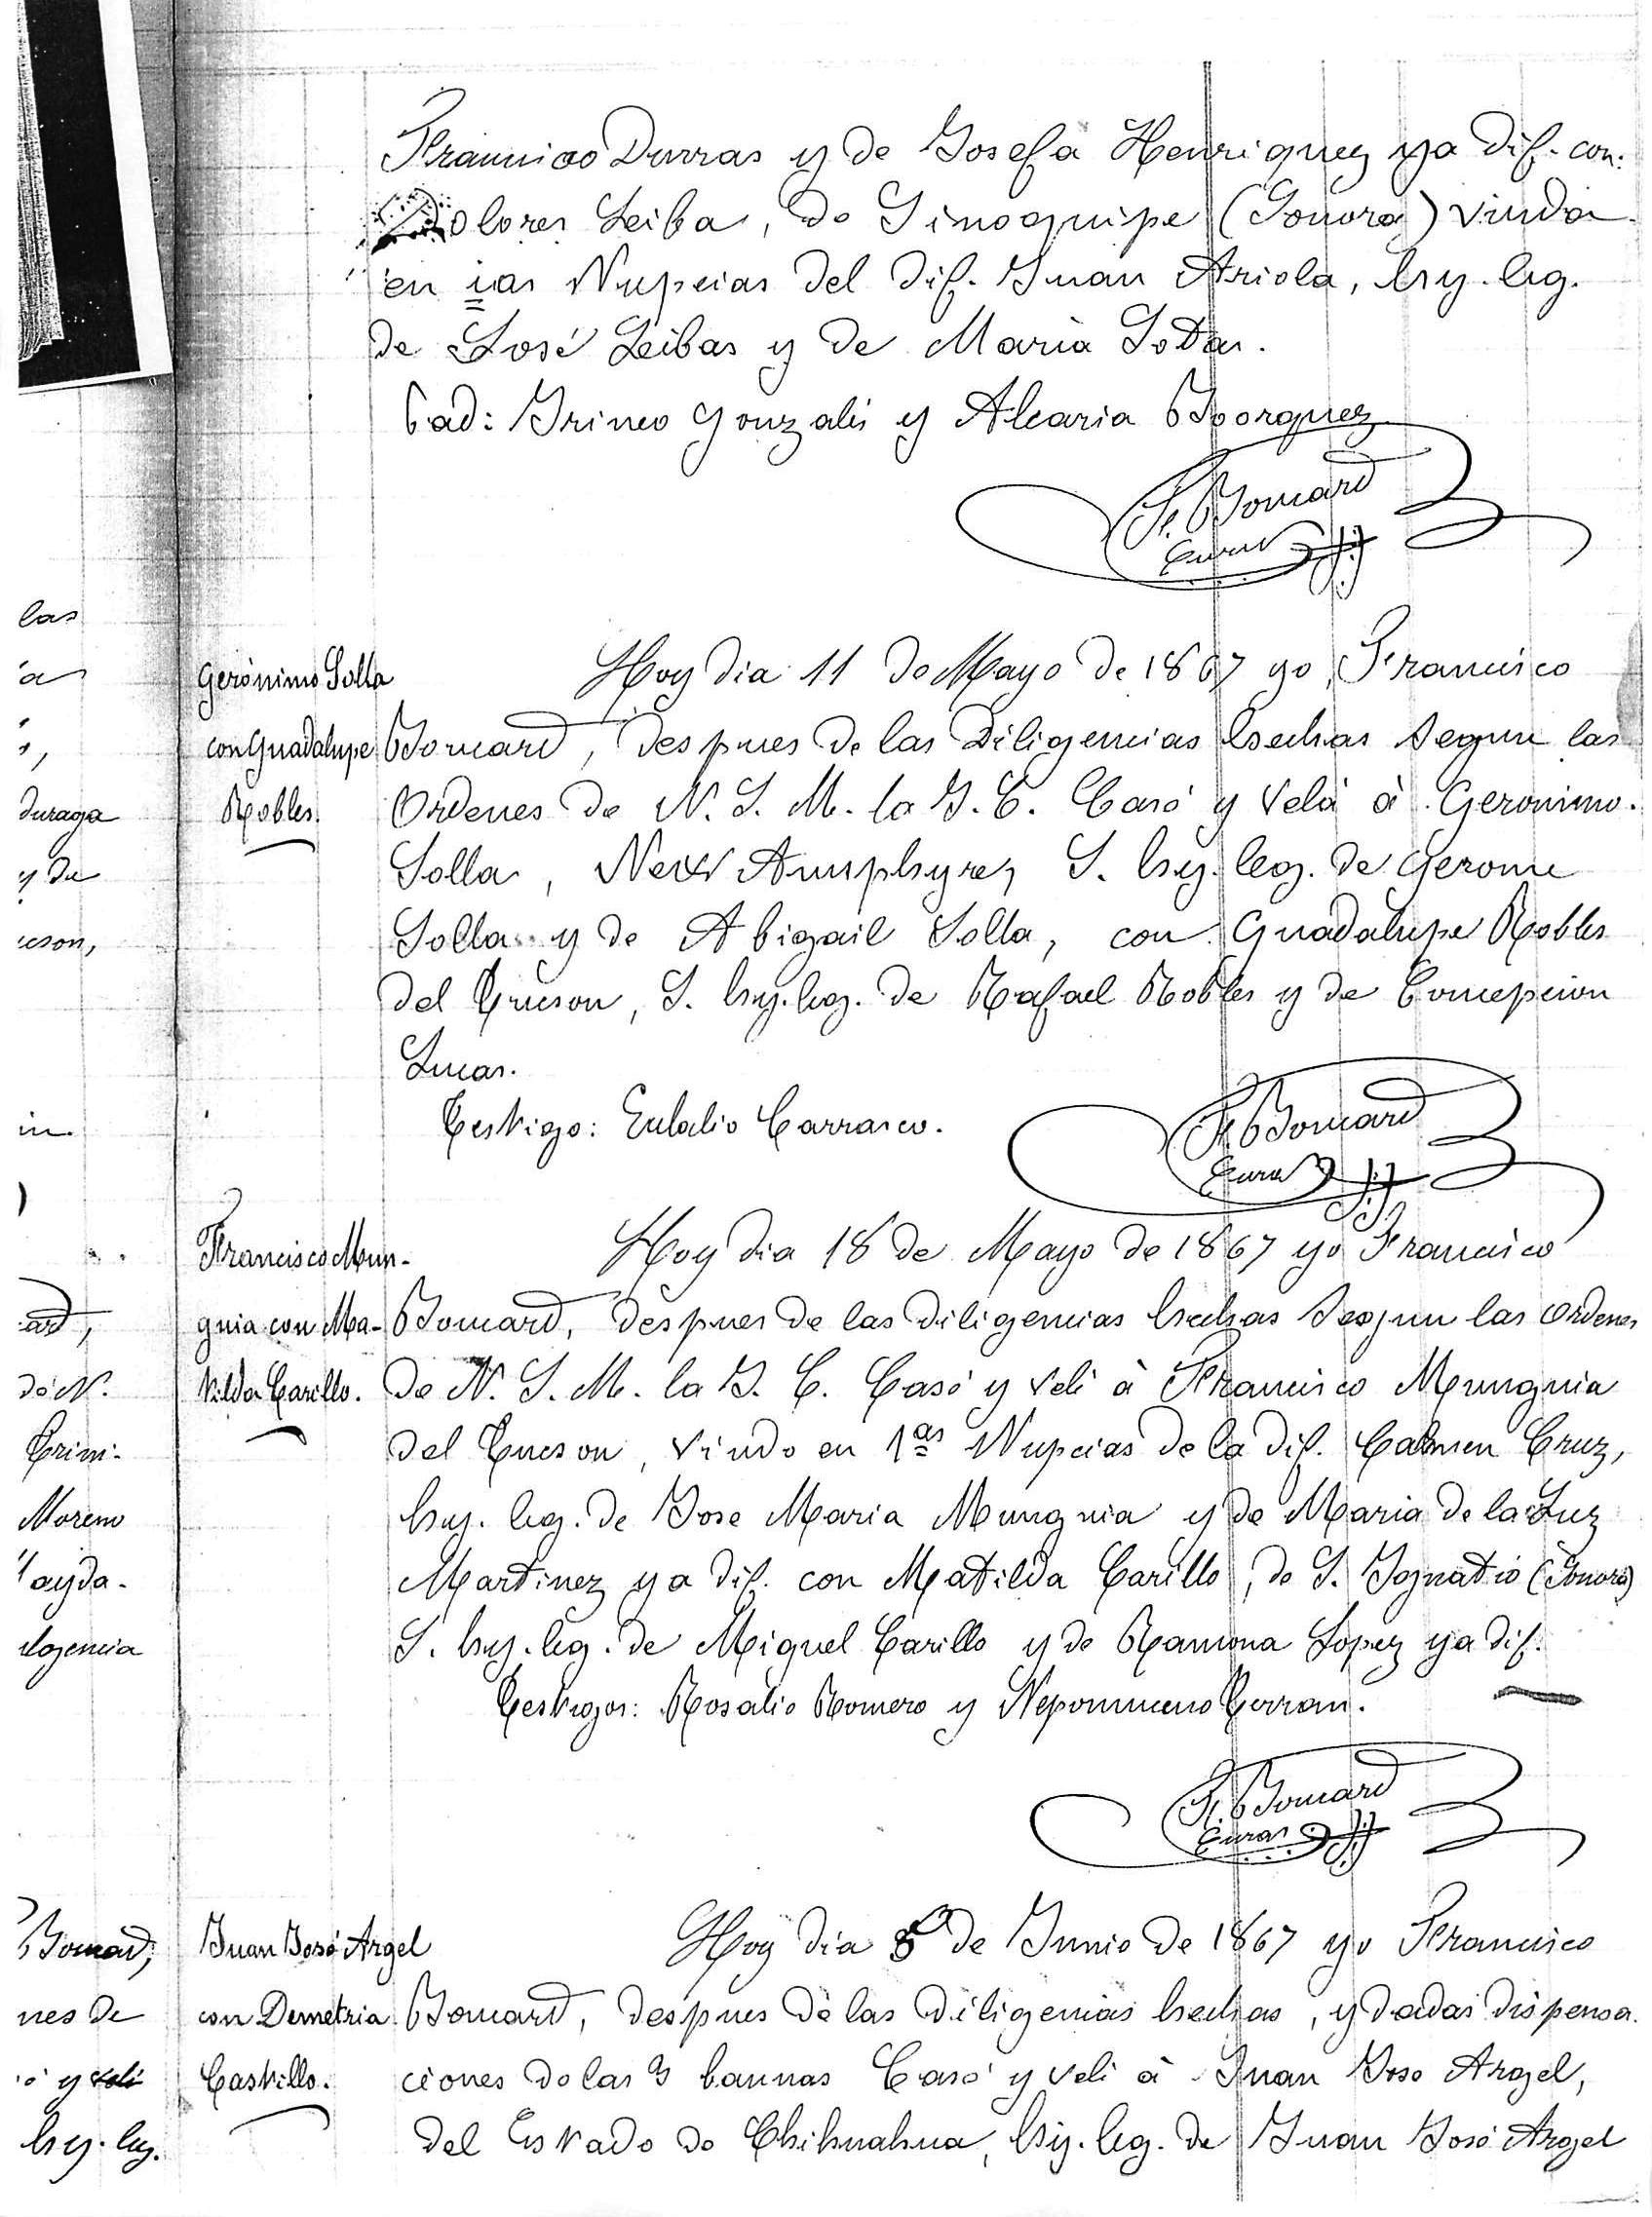 Francisco Durras y de Josefa Henriquez ya dif. con
Dolores Leiba, de Sinoquipe (Sonora) viuda
en 1as Nupcias del dif. Juan Ariola, hy. leg.
de José Leibas y de Maria Sotar.
Pad: Irineo Gonzalés y Alcaria Boorquez
F. Boucard
Cura
las
a
duraga
y de
ucson,
in.
)
ard,
de N.
Trini-
Moreno
ayda-
ilogencia
Boucard,
nes de
ó y veló
hy. leg.
Gerónimo Solla
con Guadalupe
Robles
Hoy dia 11 de Mayo de 1867 yo Francisco
Boucard, despues de las Diligencias hechas segun las
Ordenes de N. S. M. la I. C. Casó y Velé à Geronimo
Solla, New Amsphyre, S. hy. leg. de Gerome
Solla y de Abigail Solla, con Guadalupe Robles
del Tucson, S. hy. leg. de Rafael Robles y de Concepcion
Lucas.
Testigo: Eulalio Carrasco.
F. Boucard
Cura
Francisco Mun-
guia con Ma-
tilda Carillo.
Hoy dia 18 de Mayo de 1867 yo Francisco
Boucard, despues de las diligencias hechas segun las ordenes
de N. S. M. la I. C. Casó y velé à Francisco Munguia
del Tucson, viudo en 1as Nupcias de la dif. Carmen Cruz,
hy. leg. de Jose Maria Munguia y de Maria de la Luz
Martinez ya dif. con Matilda Carillo, de S. Ignatio (Sonora)
S. hy. leg. de Miguel Carillo y de Ramona Lopez ya dif.
Testigos: Rosalio Romero y Nepomuceno Terran.
F. Boucard
Cura
Juan José Argel
con Demetria
Castillo.
Hoy dia de Junio de 1867 yo Francisco
Boucard, despues de las diligencias hechas, y dadas dispensa-
ciones de las 3 bannas Casó y velé à Juan Jose Argel,
del Estado de Chihuahua, hy. leg. de Juan José Argel